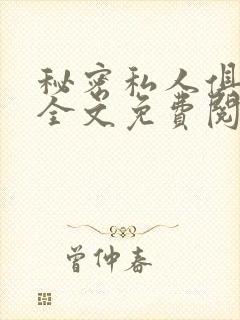 秘密私人俱
全文免費閱
曾仲春